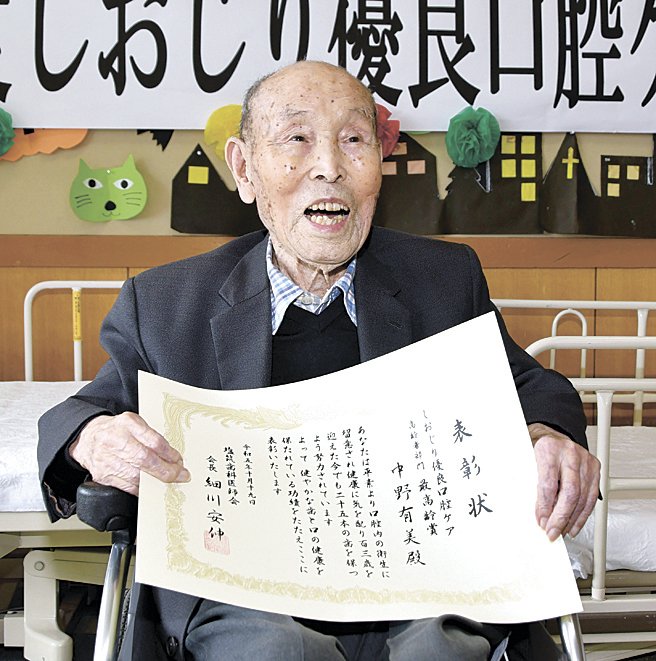 しおじり優良口腔ケ
表彰状
しおじり優良口腔ケア
高齢者部門 最高齢賞
中野有美殿
あなたは平素より口腔内の衛生に
留意され健康に気を配り百三歳を
迎えた今で二十五本の歯を保つ
よう努力されています
よって健やかな歯と口の健康を
保たれている功績をたたえここに
表彰いたします
令和五年十月十九日
塩筑歯科医師会
会長 細川安伸